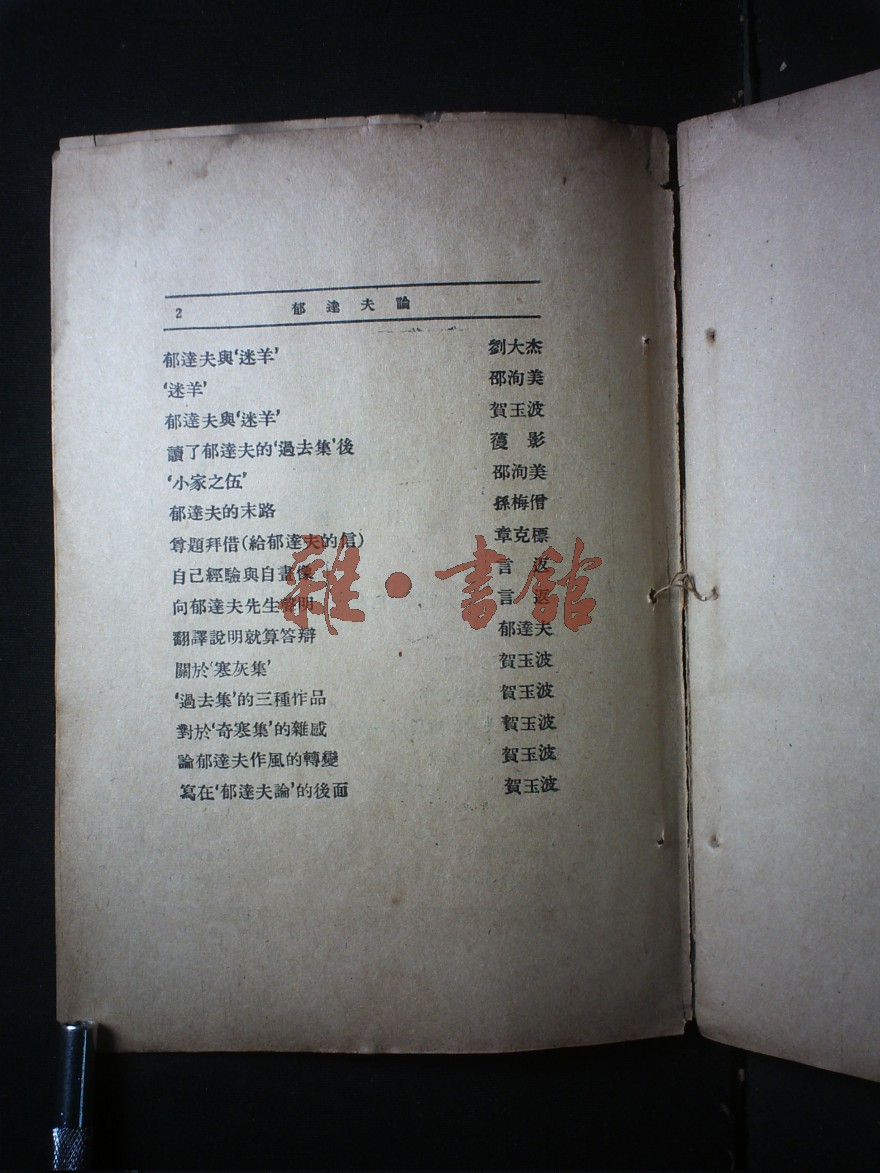 2 郁達夫論
郁達夫與‘迷羊’ 劉大杰
‘迷羊’ 邵洵美
郁達夫與‘迷羊’ 賀玉波
讀了郁達夫的‘過去集’後 薆影
‘小家之伍’ 邵洵美
郁達夫的末路 孫梅僧
尊題拜借(給郁達夫的信) 章克標
自己經驗與自畫像 言返
向郁達夫先生聲明 言返
翻譯說明就算答辯 郁達夫
關於‘寒灰集’ 賀玉波
‘過去集’的三種作品 賀玉波
對於‘奇零集’的雜感 賀玉波
論郁達夫作風的轉變 賀玉波
寫在‘郁達夫論’的後面 賀玉波
雜·書館